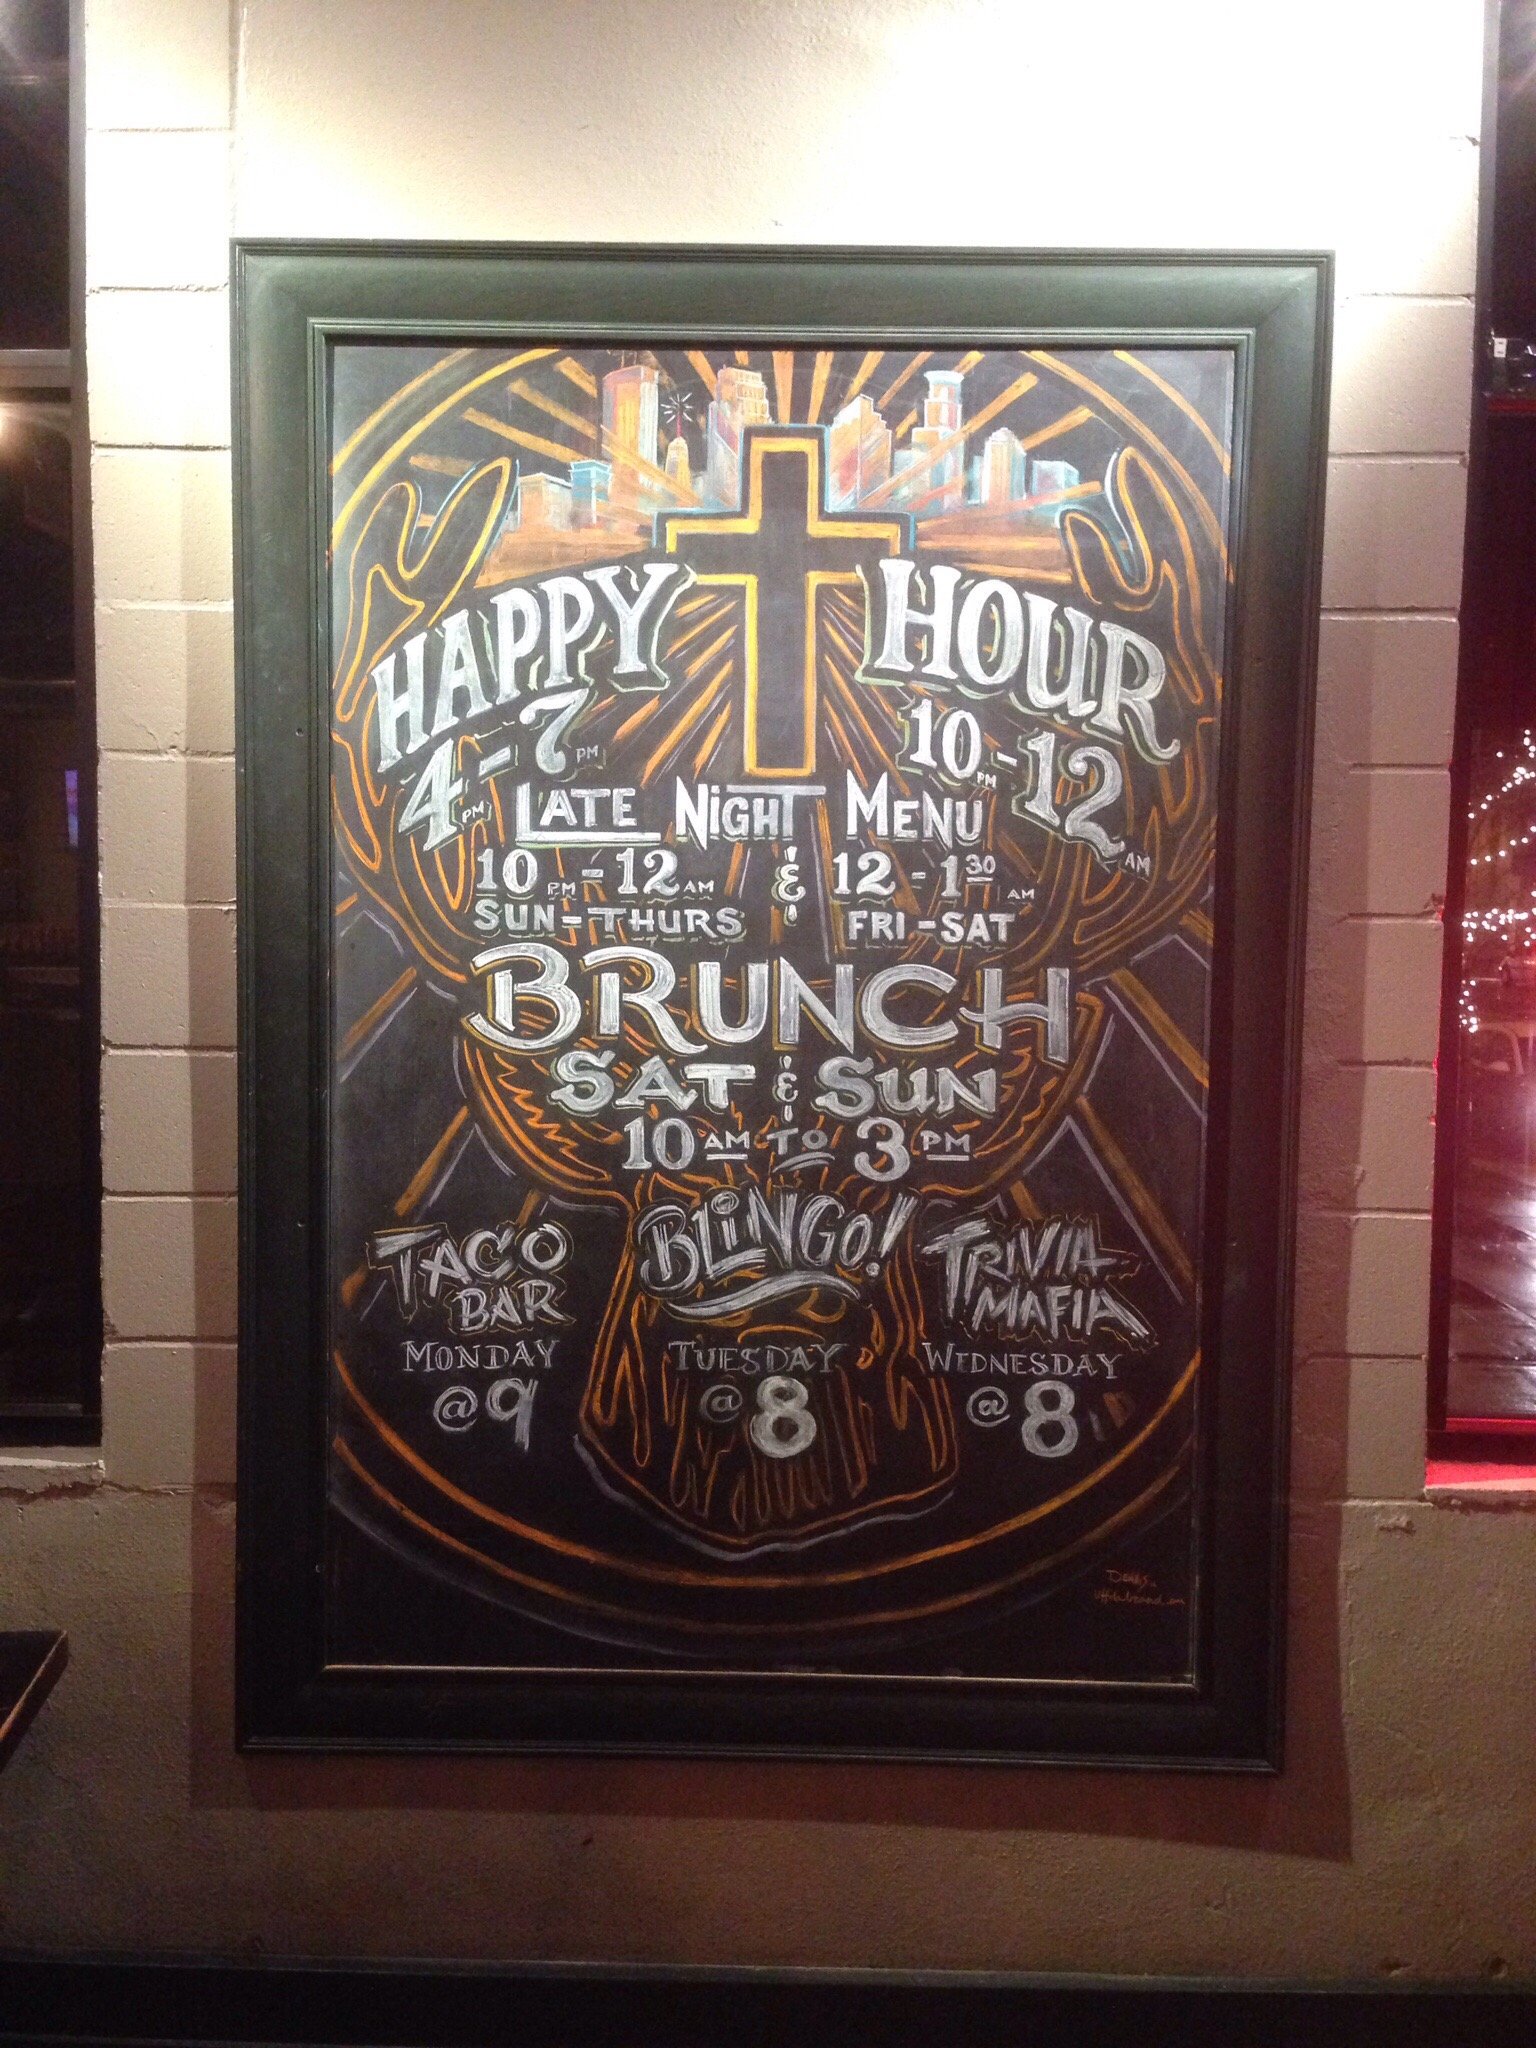 HAPPY HOUR
4PM-7PM 10PM-12AM
LATE NIGHT MENU
10PM-12AM & 12-130AM
SUN-THURS FRI-SAT
BRUNCH
SAT & SUN
10AM TO 3PM
TACO BAR
MONDAY
@ 9
BLINGO!
TUESDAY
@ 8
TRIVIA MAFIA
WEDNESDAY
@ 8